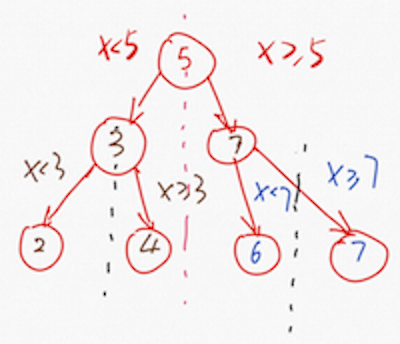 x<5 5 x≥5
3 7
x<3 x≥3 x<7 x≥7
2 4 6 7